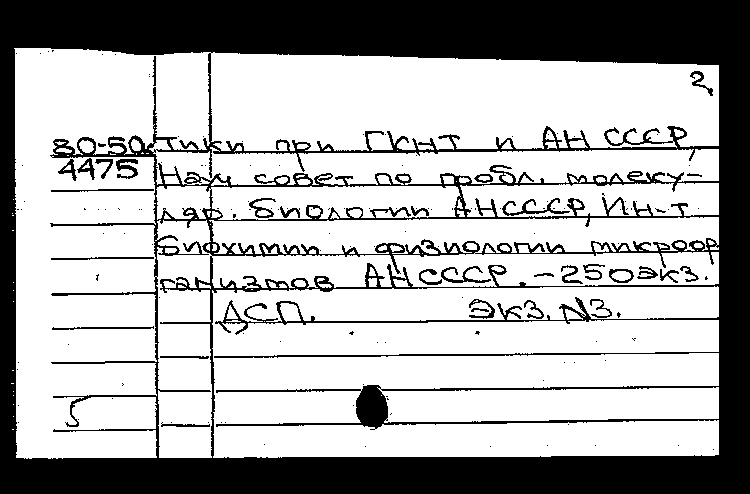 2
80-50 тики при ГКНТ и АН СССР,
4475 Науч совет по пробл. молеку-
ляр. биологии АНСССР, Ин-т
биохимии и физиологии микроор
ганизмов АНСССР. – 250экз.
ДСП. Экз. N3.
5